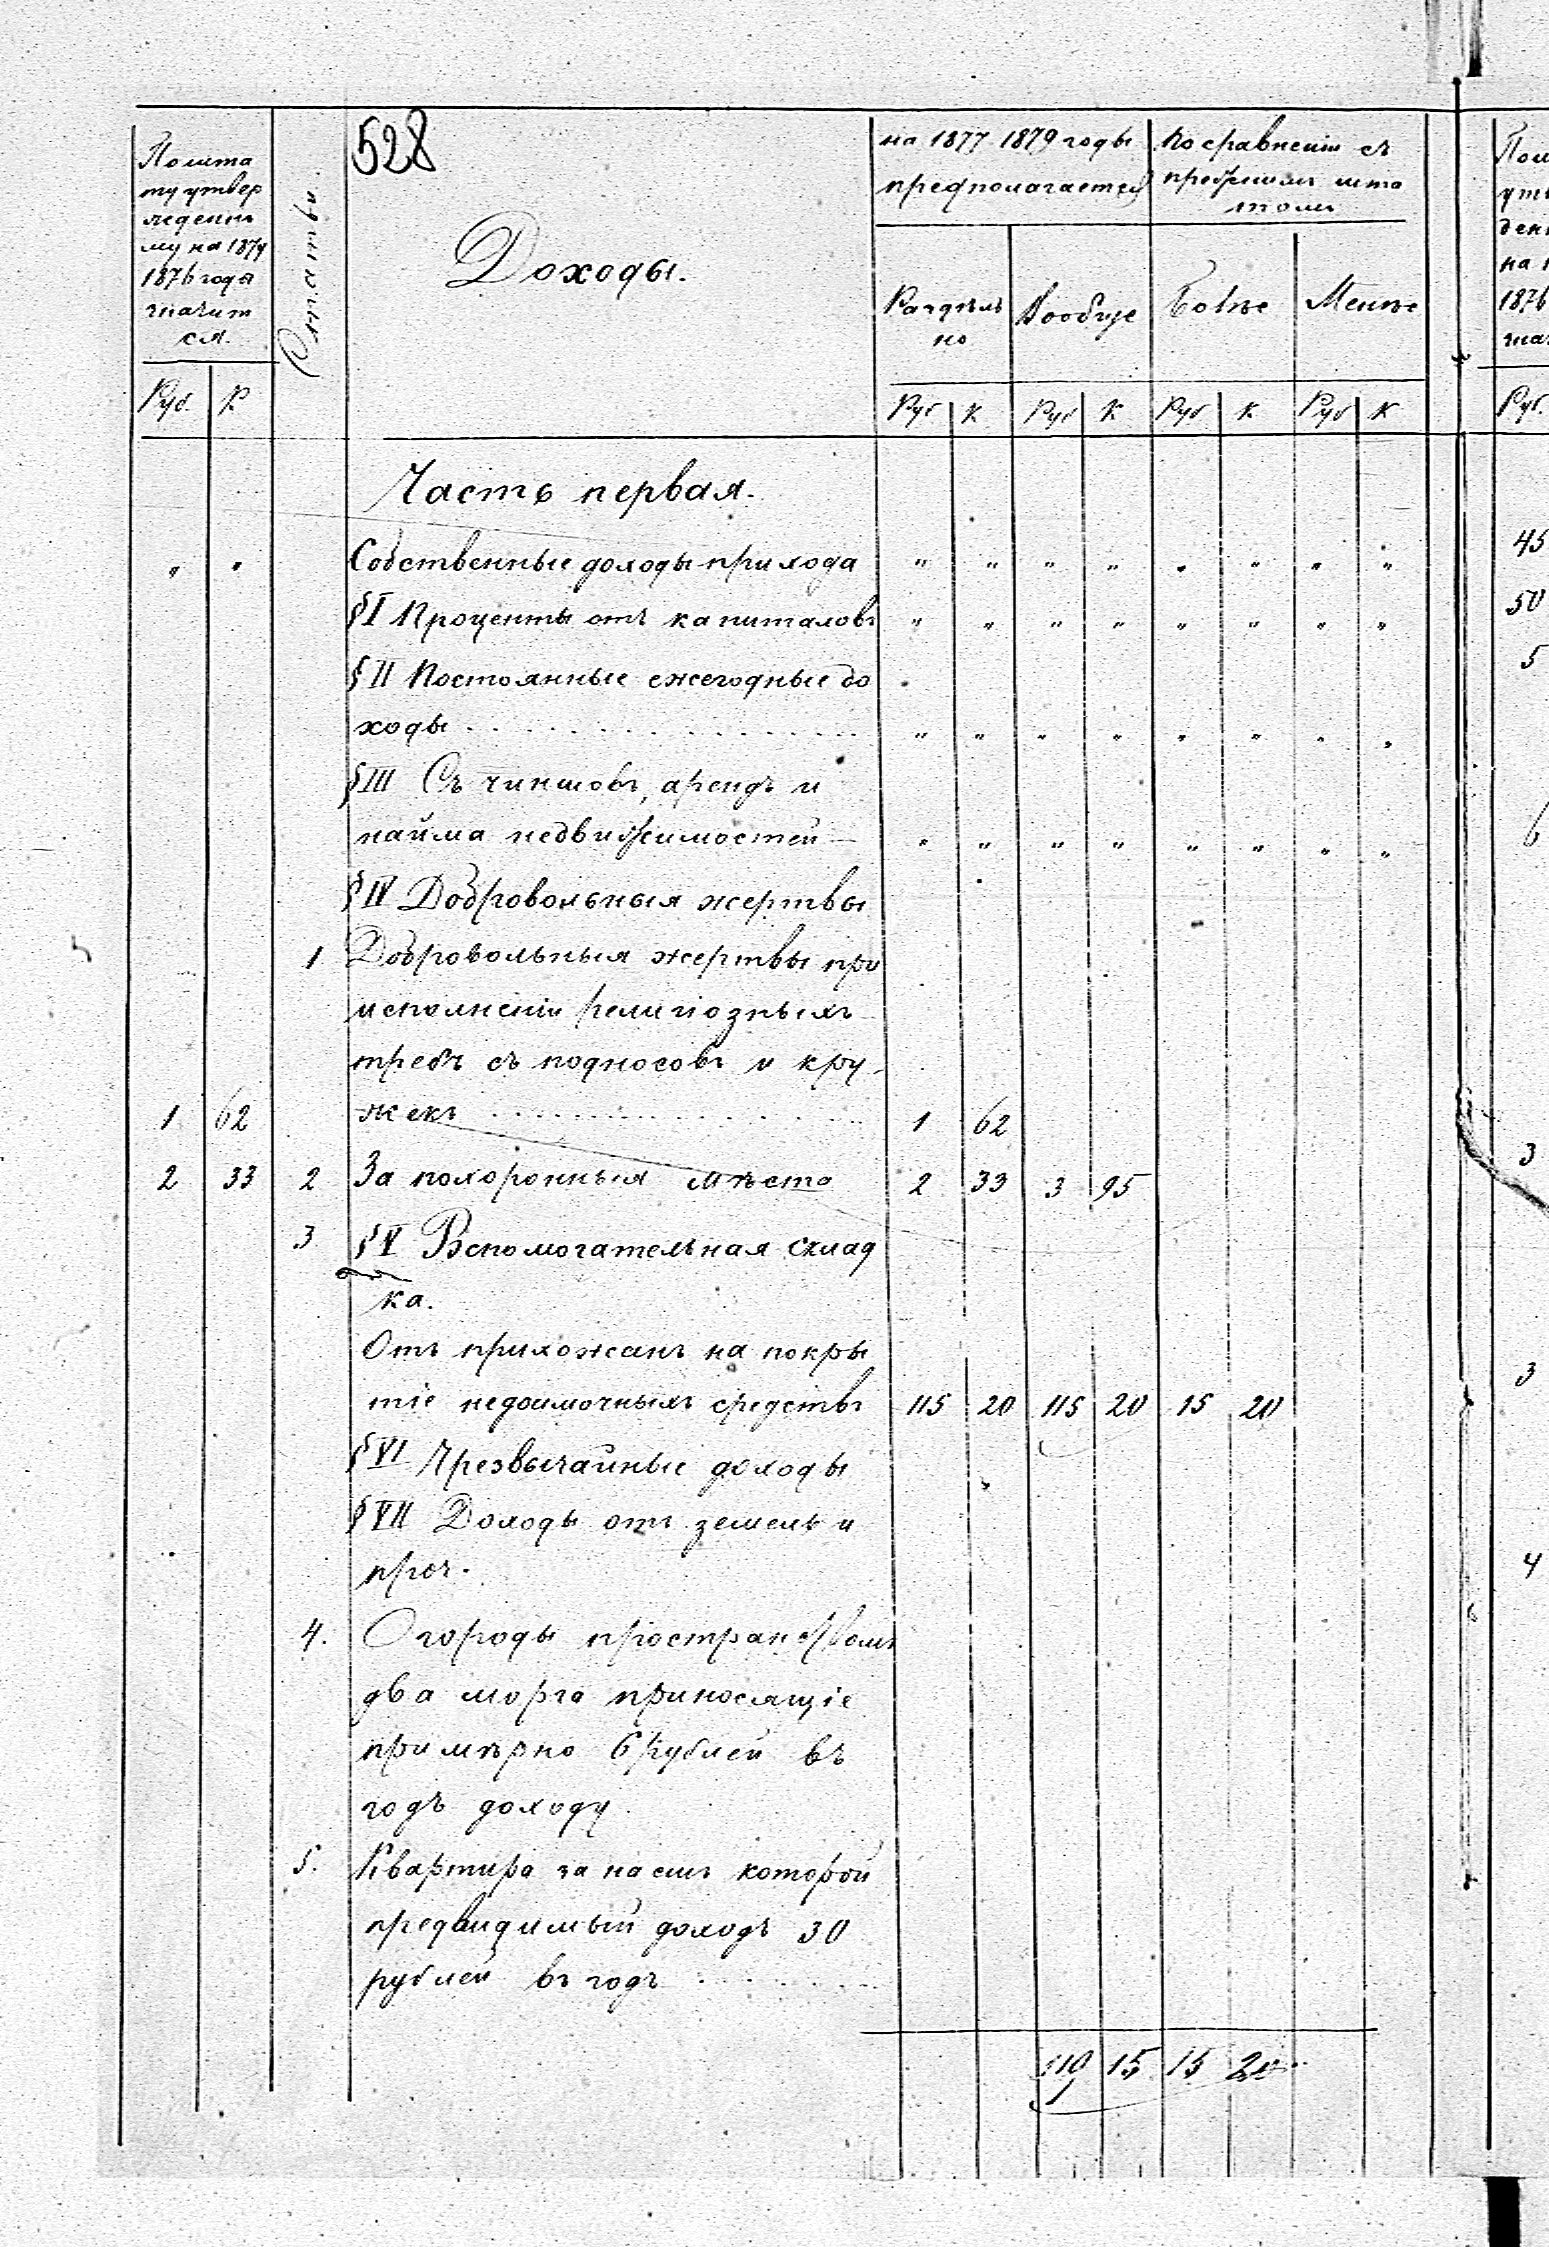 528
По шта
ту утвер
жденно
му на 1874
1876 годы
значит
ся.
Руб. К
Статьи
Доходы.
на 1877 1879 годы
предполагается
По сравненію съ
прежнимъ шта
томъ
Раздѣль
но
Вообще
Болѣе
Менѣе
Руб К Руб К Руб К Руб К
Часть первая.
" " Собственные доходы прихода " " " " " " " "
§ I Проценты отъ капиталовъ " " " " " " " "
§ II Постоянные ежегодные до
ходы . . . . . " " " " " " " "
§ III Съ чиншовъ, арендъ и
найма недвижимостей — " " " " " " " "
§ IV Добровольныя жертвы
1 Добровольныя жертвы при
исполненіи религіозныхъ
требъ съ подносовъ и кру-
1 62 жекъ . . . . . 1 62
2 33 2 За похоронныя мѣста 2 33 3 95
3 § V Вспомогательная склад
ка.
Отъ прихожанъ на покры
тіе недоимочныхъ средствъ 115 20 115 20 15 20
§ VI Чрезвычайные доходы
§ VII Доходы отъ земель и
проч.
4. Огороды пространствомъ
два морга приносящіе
примѣрно 6 рублей въ
годъ доходу
5. Квартира за наемъ которой
предвидимый доходъ 30
рублей въ годъ . . . . .
119 15 15 20
Пош
утв
ден
на 1
1876
знач
Руб.
45
50
5
6
3
3
4